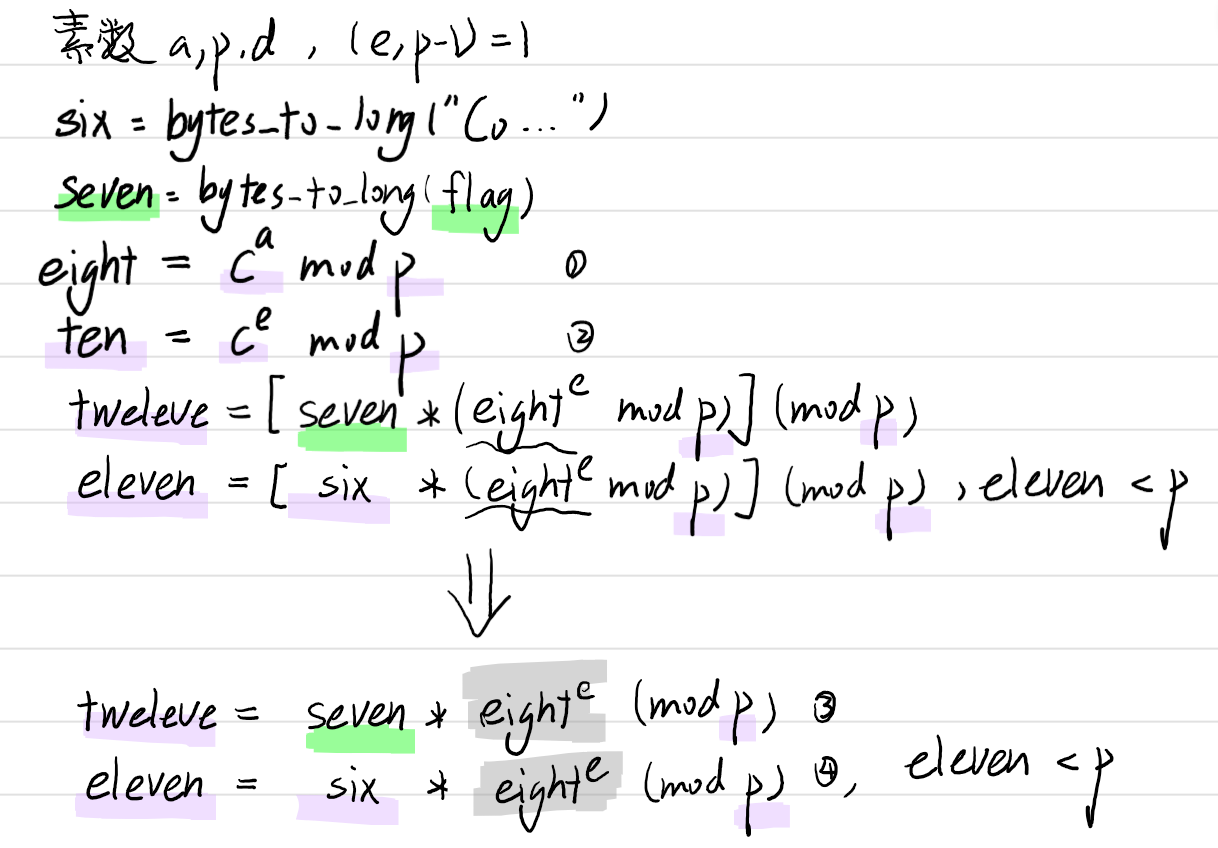 素数 a,p,d , (e,p-1)=1
six = bytes_to_long("Co...")
seven = bytes_to_long(flag)
eight = c^a mod p ①
ten = c^e mod p ②
tweleve = [ seven * (eight^e mod p)] (mod p)
eleven = [ six * (eight^e mod p)] (mod p) , eleven < p
⇓
tweleve = seven * eight^e (mod p) ③
eleven = six * eight^e (mod p) ④, eleven < p